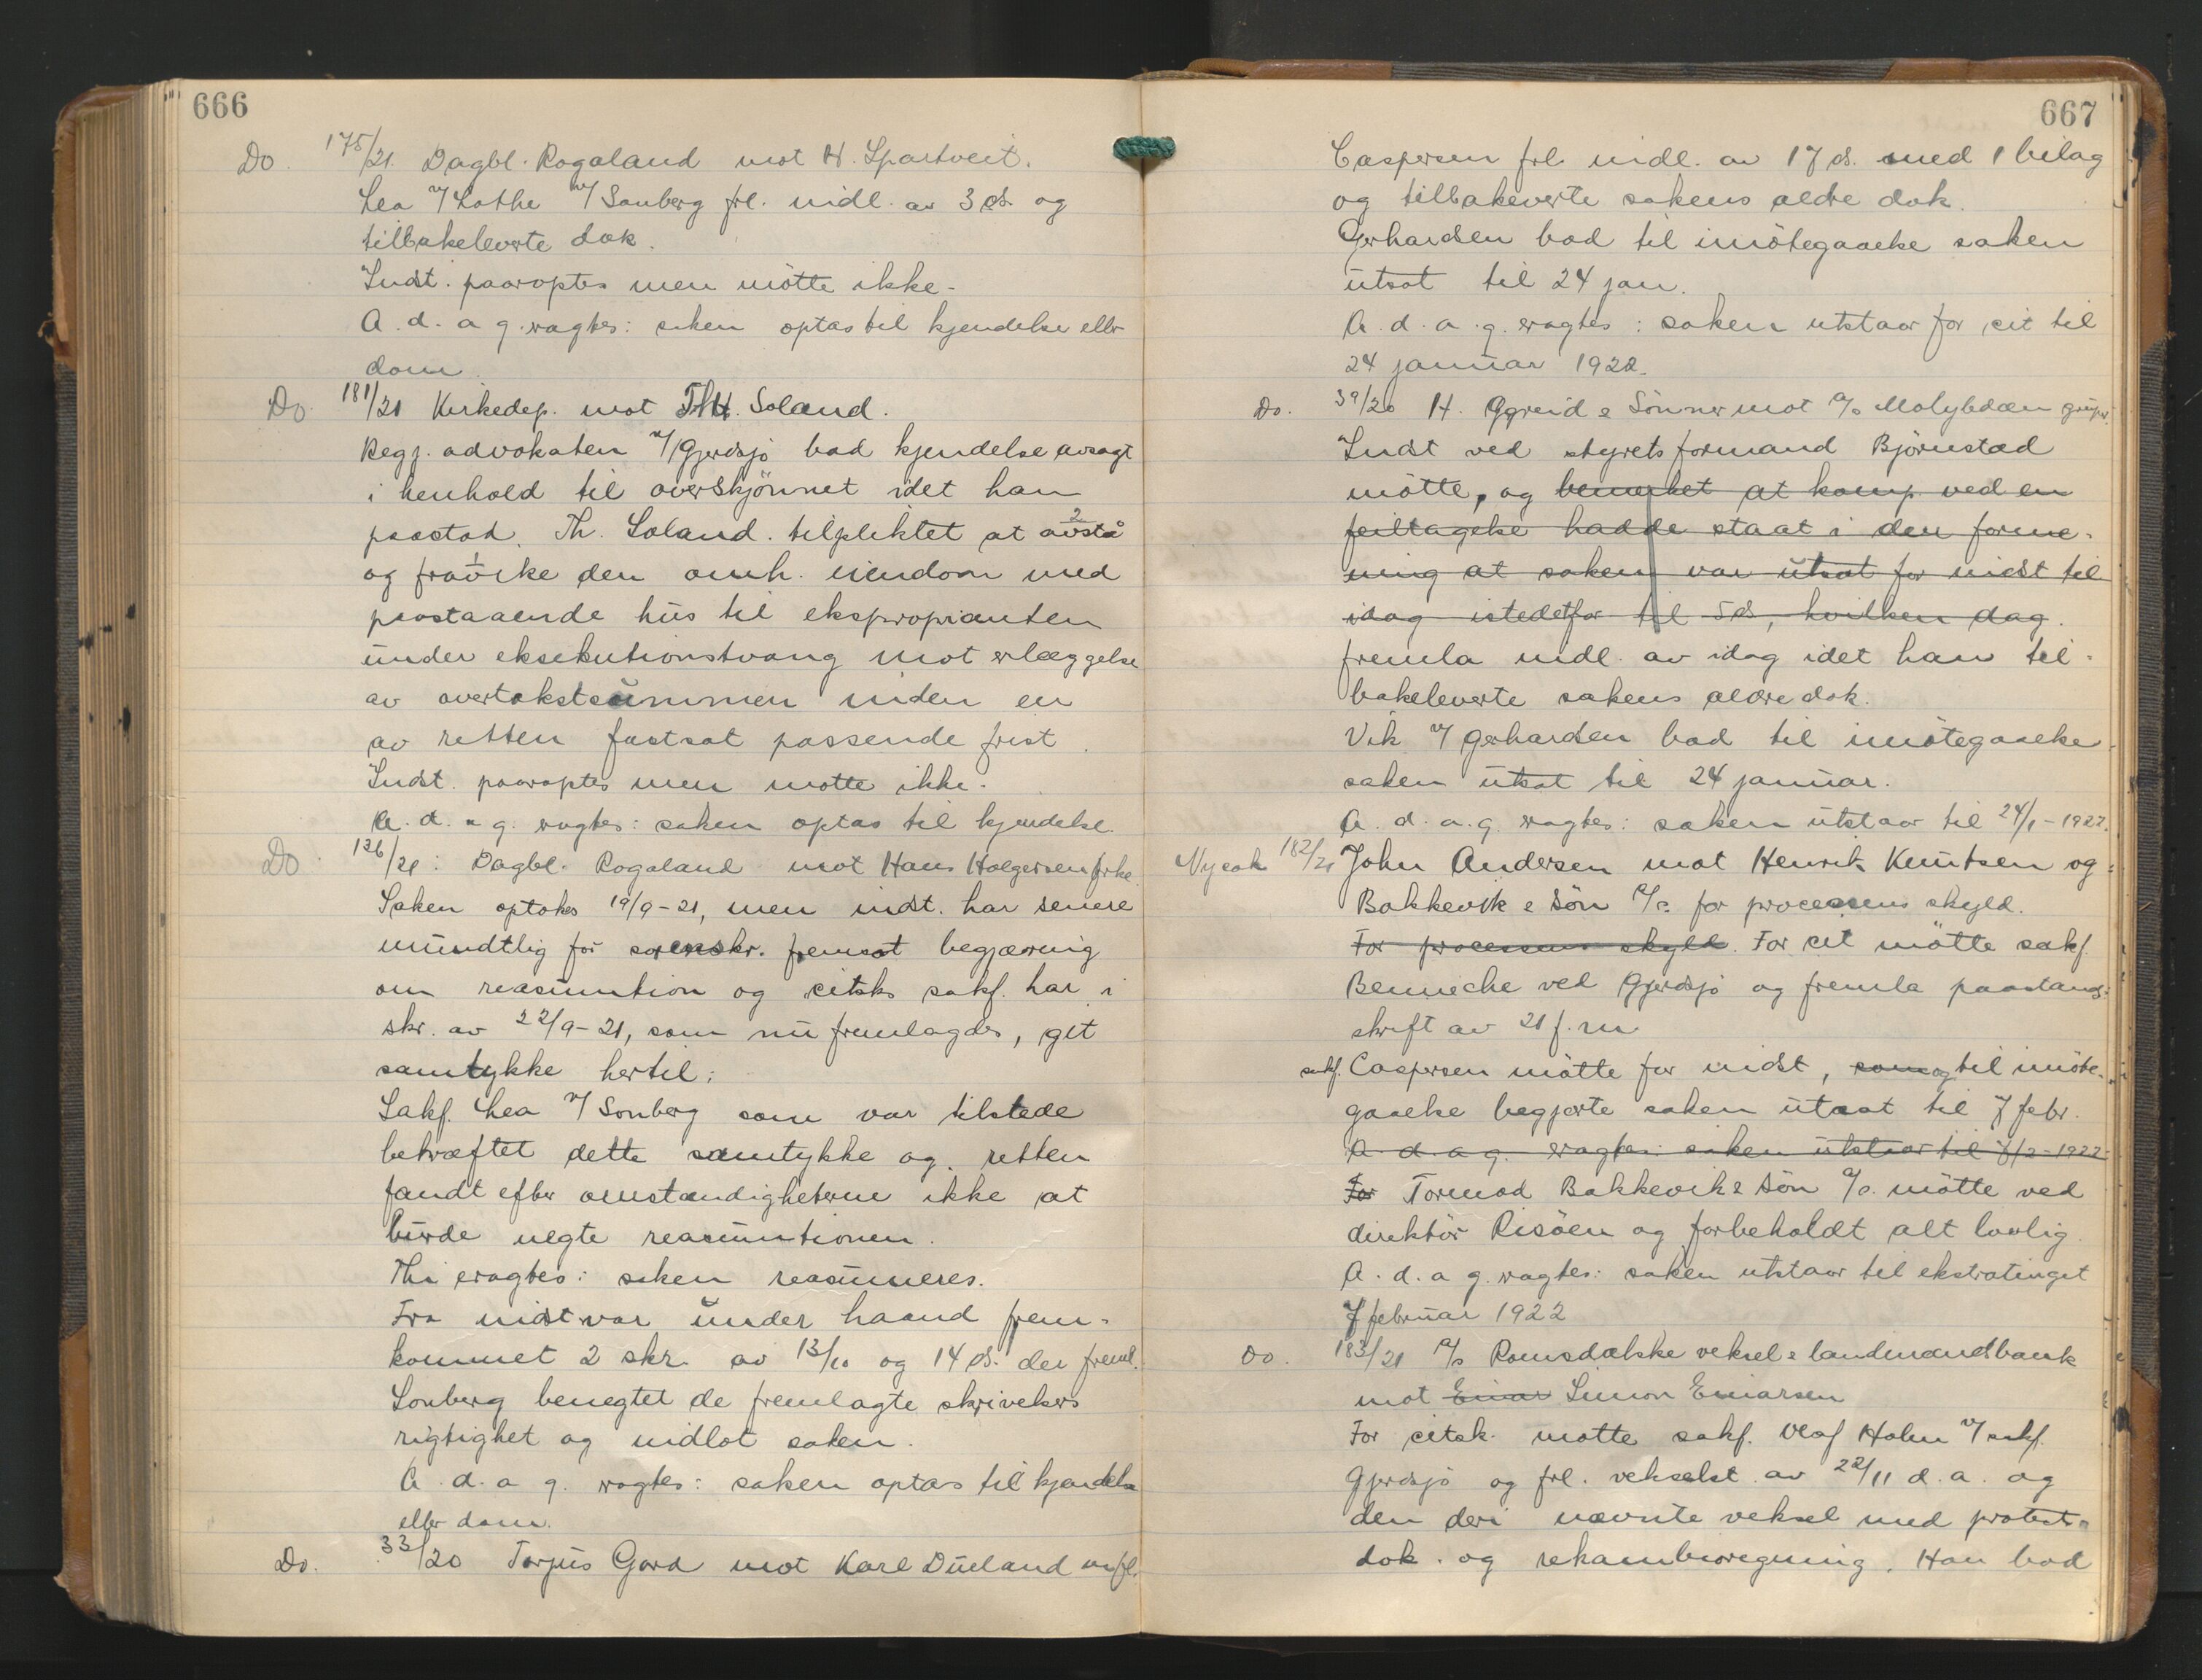 666
Do. 175/21. Dagbl. Rogaland mot H. Spartveit.
Lea v/ Lothe v/ Sonberg frl. indl. av 3 ds. og
tilbakeleverte dok.
Indst. paaroptes men mötte ikke.
A. d. a g. eragtes: saken optas til kjendelse eller
dom.
Do. 181/21 Kirkedep. mot Th. Soland.
Regj. advokaten v/ Gjerdsjö bad kjendelse avsagt
i henhold til overskjönnet idet han
paastod. Th. Soland. tilpliktet at avstå 2
og fravike 1 den omh. eiendom med
paastaaende hus til ekspropianten
under eksekutionstvang mot erlæggelse
av overtakstsummen inden en
av retten fastsat passende frist.
Indst. paaroptes men mötte ikke.
A. d. a g. eragtes: saken optas til kjendelse.
Do. 126/21: Dagbl. Rogaland mot Hans Holgersen frke.
Saken optokes 19/9-21, men indst. har senere
mundtlig for sorenskr. fremsat begjæring
om reasumtion og citsks sakf. har i
skr. av 22/9-21, som nu fremlagdes, git
samtykke hertil;
Sakf. Lea v/ Sonberg som var tilstede
bekræftet dette samtykke og retten
fandt efter omstændigheterne ikke at
burde negte reasumtionen.
Thi eragtes: saken reasumeres.
Fra indst var under haand frem-
kommet 2 skr. av 13/10 og 14 ds. der freml.
Sonberg benegtet de fremlagte skrivelsers
rigtighet og indlot saken.
A. d. a g. eragtes: saken optas til kjendelse
eller dom.
Do. 33/20 Torjus Gard mot Karl Dueland m/fl.
667
Caspersen frl. indl. av 17 ds. med 1 bilag
og tilbakeverte sakens ældre dok.
Gerhardsen bad til imötegaaelse saken
utsat til 24 jan.
A. d. a. g. eragtes: saken utstaar for cit til
24 januar 1922.
Do. 39/20 H. Egreid & Sönner mot A/S Molybdæn gruper.
Indst ved styrets formand Björnstad
mötte, og bemerket at komp. ved en
feiltagelse hadde staat i den forme-
ning at saken var utsat for indst til
idag istedetfor til 5 ds, hvilken dag.
fremla indl. av idag idet han til-
bakeleverte sakens ældre dok.
Vik v/ Gerhardsen bad til imötegaaelse
saken utsat til 24 januar.
A. d. a. g. eragtes: saken utstaar til 24/1-1922.
Ny sak 182/21 John Andersen mot Henrik Knutsen og
Bakkevik & Sön A/S for processens skyld.
For processens skyld. For cit mötte sakf.
Bennecke ved Gjerdsjö og fremla paastands-
skrift av 21 f.m
sakf. Caspersen mötte for indst, som og til imöte-
gaaelse begjærte saken utsat til 7 febr.
A. d. a g. eragtes: saken utstaar til 7/2-1922
For Tormod Bakkevik & Sön A/S. mötte ved
direktör Risöen og forbeholdt alt lovlig.
A. d. a g. eragtes: saken utstaar til ekstratinget
7 februar 1922
Do. 183/21 A/S Romsdalske veksel & landmandsbank
mot Einar Simon Einarsen
For citsk. mötte sakf. Olaf Holm v/ sakf.
Gjerdsjö og frl. vekselst. av 22/11 d. a. og
den deri nævnte veksel med protest-
dok. og rekambioregning. Han bad